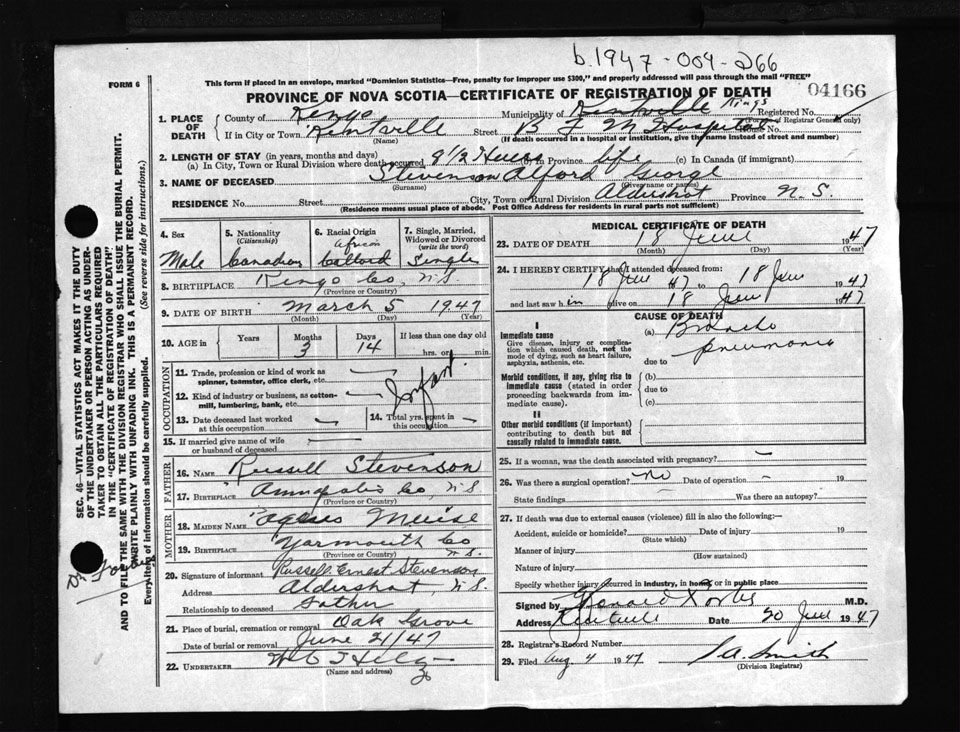 b.1947-009-266
FORM 6
This form if placed in an envelope, marked "Dominion Statistics—Free, penalty for improper use $300," and properly addressed will pass through the mail "FREE"
PROVINCE OF NOVA SCOTIA—CERTIFICATE OF REGISTRATION OF DEATH
04166
1. PLACE OF DEATH
County of Kings
Municipality of Kentville Kings
Registered No.
(For use of Registrar General only)
If in City or Town Kentville
(Name)
Street B F M Hospital House No.
(If death occurred in a hospital or institution, give the name instead of street and number)
2. LENGTH OF STAY (in years, months and days)
(a) In City, Town or Rural Division where death occurred 9 1/2 Hours (b) In Province life (c) In Canada (if immigrant)
3. NAME OF DECEASED Stevenson Alford George
(Surname) (Given name or names)
RESIDENCE No. Street City, Town or Rural Division Aldershot Province N.S.
(Residence means usual place of abode. Post Office Address for residents in rural parts not sufficient)
4. Sex
Male
5. Nationality
(Citizenship)
Canadian
6. Racial Origin
African
7. Single, Married, Widowed or Divorced
(write the word)
Single
8. BIRTHPLACE Kings Co, N.S.
(Province or Country)
9. DATE OF BIRTH March 5 1947
(Month) (Day) (Year)
10. AGE in
Years Months Days If less than one day old
3 14 hrs. or min.
OCCUPATION
11. Trade, profession or kind of work as spinner, teamster, office clerk, etc.
12. Kind of industry or business, as cotton-mill, lumbering, bank, etc.
Infant
13. Date deceased last worked at this occupation
14. Total yrs. spent in this occupation
15. If married give name of wife or husband of deceased
FATHER
16. NAME Russell Stevenson
17. BIRTHPLACE Annapolis Co, N.S.
(Province or Country)
MOTHER
18. MAIDEN NAME Muise
19. BIRTHPLACE Yarmouth Co N.S.
(Province or Country)
20. Signature of informant Russell Ernest Stevenson
Address Aldershot, N.S.
Relationship to deceased father
21. Place of burial, cremation or removal Oak Grove
Date of burial or removal June 21/47
22. UNDERTAKER
(Name and address)
MEDICAL CERTIFICATE OF DEATH
23. DATE OF DEATH 18 June 1947
(Month) (Day) (Year)
24. I HEREBY CERTIFY that I attended deceased from:
18 June 47 to 18 June 1947
and last saw him alive on 18 June 1947
CAUSE OF DEATH
I
Immediate cause
Give disease, injury or complication which caused death, not the mode of dying, such as heart failure, asphyxia, asthenia, etc.
(a) Broncho pneumonia
due to
Morbid conditions, if any, giving rise to immediate cause (stated in order proceeding backwards from immediate cause).
(b)
due to
(c)
II
Other morbid conditions (if important) contributing to death but not causally related to immediate cause.
25. If a woman, was the death associated with pregnancy?
26. Was there a surgical operation? no Date of operation 19
State findings Was there an autopsy?
27. If death was due to external causes (violence) fill in also the following—
Accident, suicide or homicide? Date of injury 19
(State which)
Manner of injury
(How sustained)
Nature of injury
Specify whether injury occurred in industry, in home or in public place
Signed by Donald Forbes M.D.
Address Kentville Date 20 June 1947
28. Registrar's Record Number
29. Filed Aug 4 1947 Smith
(Division Registrar)
SEC. 46—VITAL STATISTICS ACT MAKES IT THE DUTY OF THE UNDERTAKER OR PERSON ACTING AS UNDERTAKER TO OBTAIN ALL THE PARTICULARS REQUIRED IN THE "CERTIFICATE OF REGISTRATION OF DEATH" AND TO FILE THE SAME WITH THE DIVISION REGISTRAR WHO SHALL ISSUE THE BURIAL PERMIT.
WRITE PLAINLY WITH UNFADING INK. THIS IS A PERMANENT RECORD.
Every item of information should be carefully supplied. (See reverse side for instructions.)
Dr Forbes